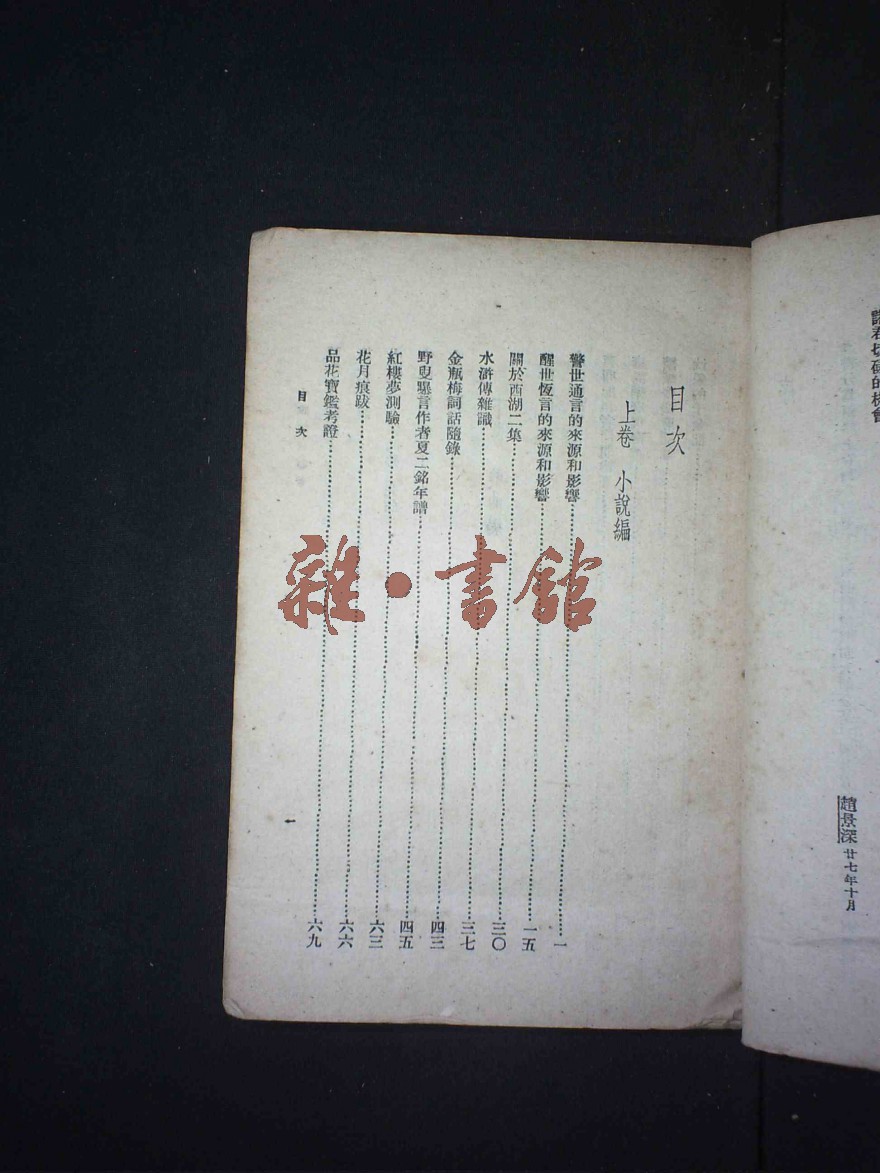 諸君切磋的機會
趙景深 廿七年十月
目次
上卷 小說編
警世通言的來源和影響……一
醒世恆言的來源和影響……一五
關於西湖二集……三〇
水滸傳雜識……三七
金瓶梅詞話隨錄……四三
野叟曝言作者夏二銘年譜……四五
紅樓夢測驗……六三
花月痕跋……六六
品花寶鑑考證……六九
目次
一
雜·書館